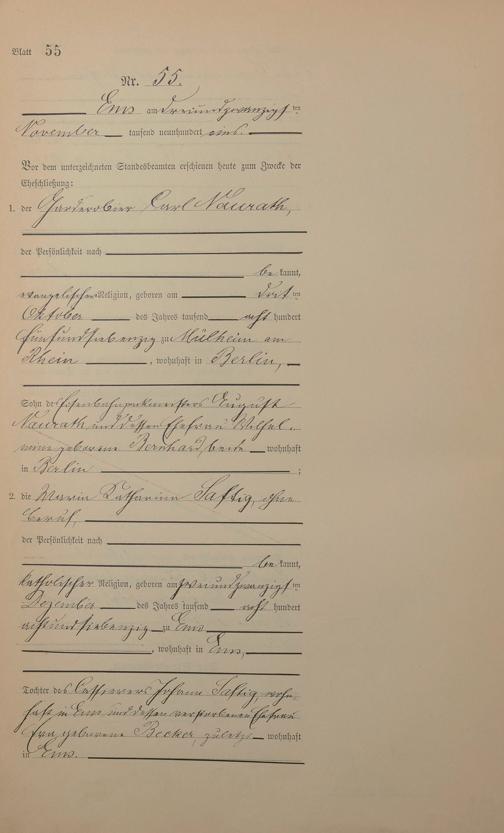 Blatt 55
Nr. 55.
Ems am dreiundzwanzigsten
November tausend neunhundert eins.
Vor dem unterzeichneten Standesbeamten erschienen heute zum Zwecke der
Eheschließung:
1. der Garderobier Carl Naurath,
der Persönlichkeit nach
be kannt,
evangelischer Religion, geboren am dritten
Oktober des Jahres tausend acht hundert
fünfundsiebenzig zu Mülheim am
Rhein, wohnhaft in Berlin,
Sohn des August
Naurath und dessen Ehefrau Wilhel-
mine geborene Bernhard, beide wohnhaft
in Berlin;
2. die Maria Katharina Saftig, ohne
Beruf,
der Persönlichkeit nach
be kannt,
katholischer Religion, geboren am zweiundzwanzigsten
Dezember des Jahres tausend acht hundert
achtundsiebenzig zu Ems
, wohnhaft in Ems,
Tochter des Johann Saftig, wohn-
haft in Ems und dessen verstorbenen Ehefrau
Eva geborene Becker, zuletzt wohnhaft
in Ems.